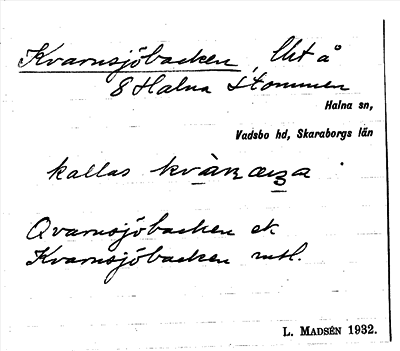 Kvarnsjöbacken, Uit å
8 Halna Stommen
Halna sn,
Vadsbo hd, Skaraborgs län
kallas
Qvarnsjöbacken ek
Kvarnsjöbacken mtl.
L. MADSÉN 1932.